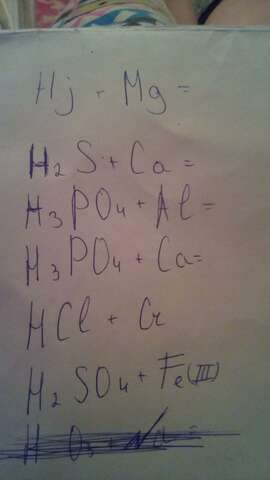 Hj + Mg =
H₂S + Ca =
H₃PO₄ + Al =
H₃PO₄ + Ca =
HCl + Cr
H₂SO₄ + Fe (III)